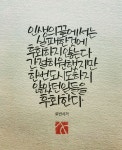 인생의 끝에서는
실패한 것에
후회하지 않는다
간절히 원했지만
한번도 시도하지
않았던 일들을
후회한다